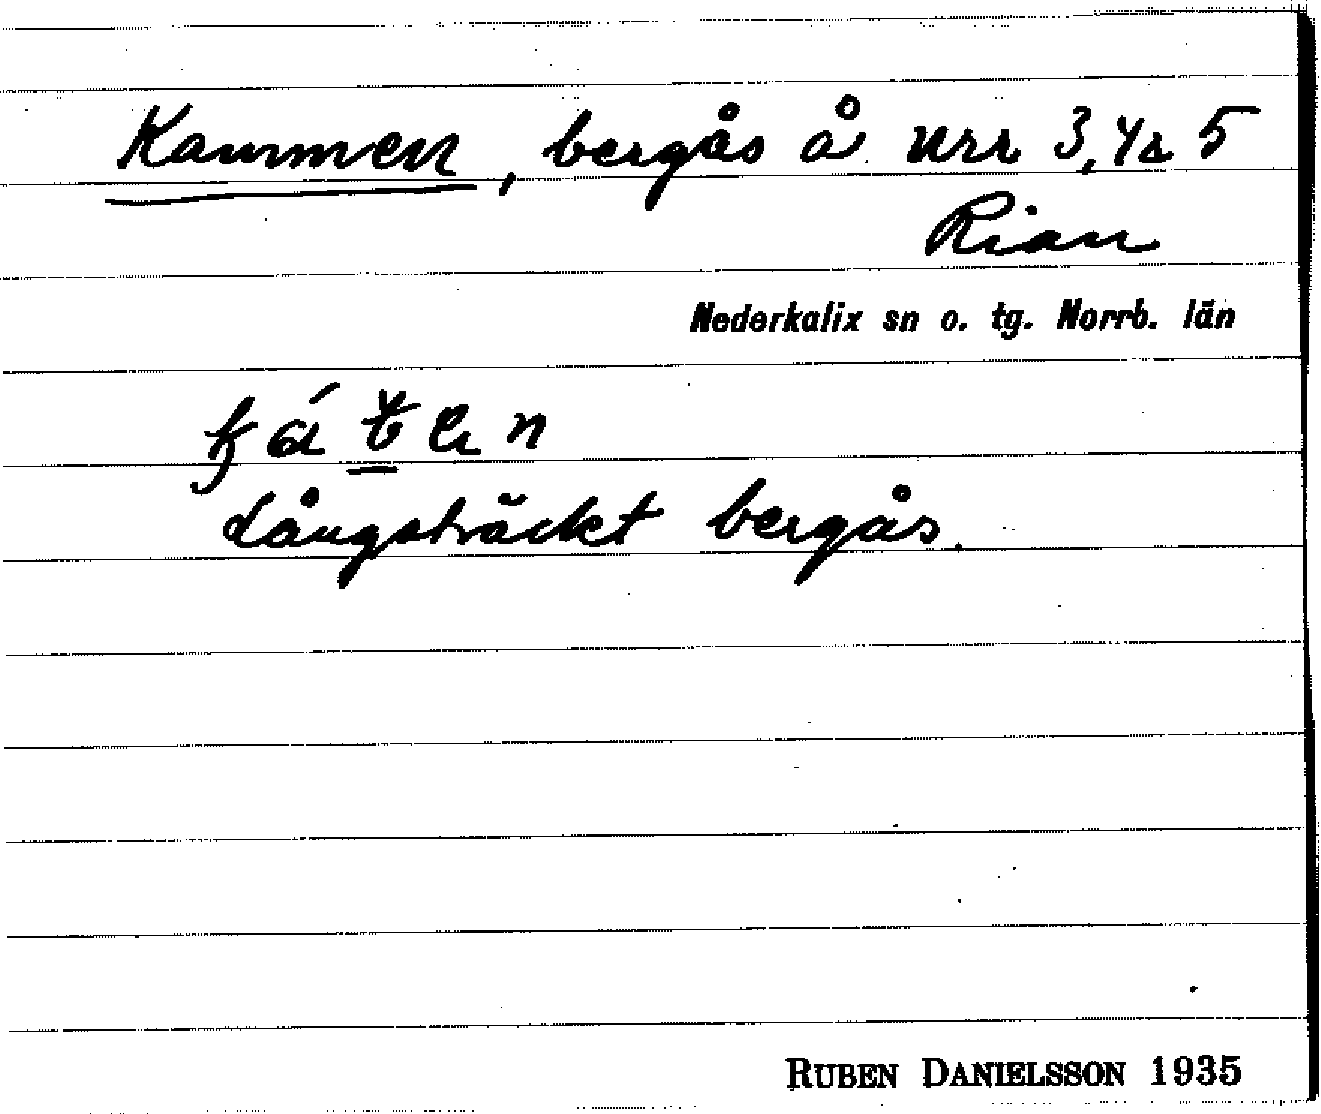 Kammen, bergås å urr 3, 4 a 5
Rian
Nederkalix sn o. tg. Norrb. län
Långsträckt bergås.
RUBEN DANIELSSON 1935